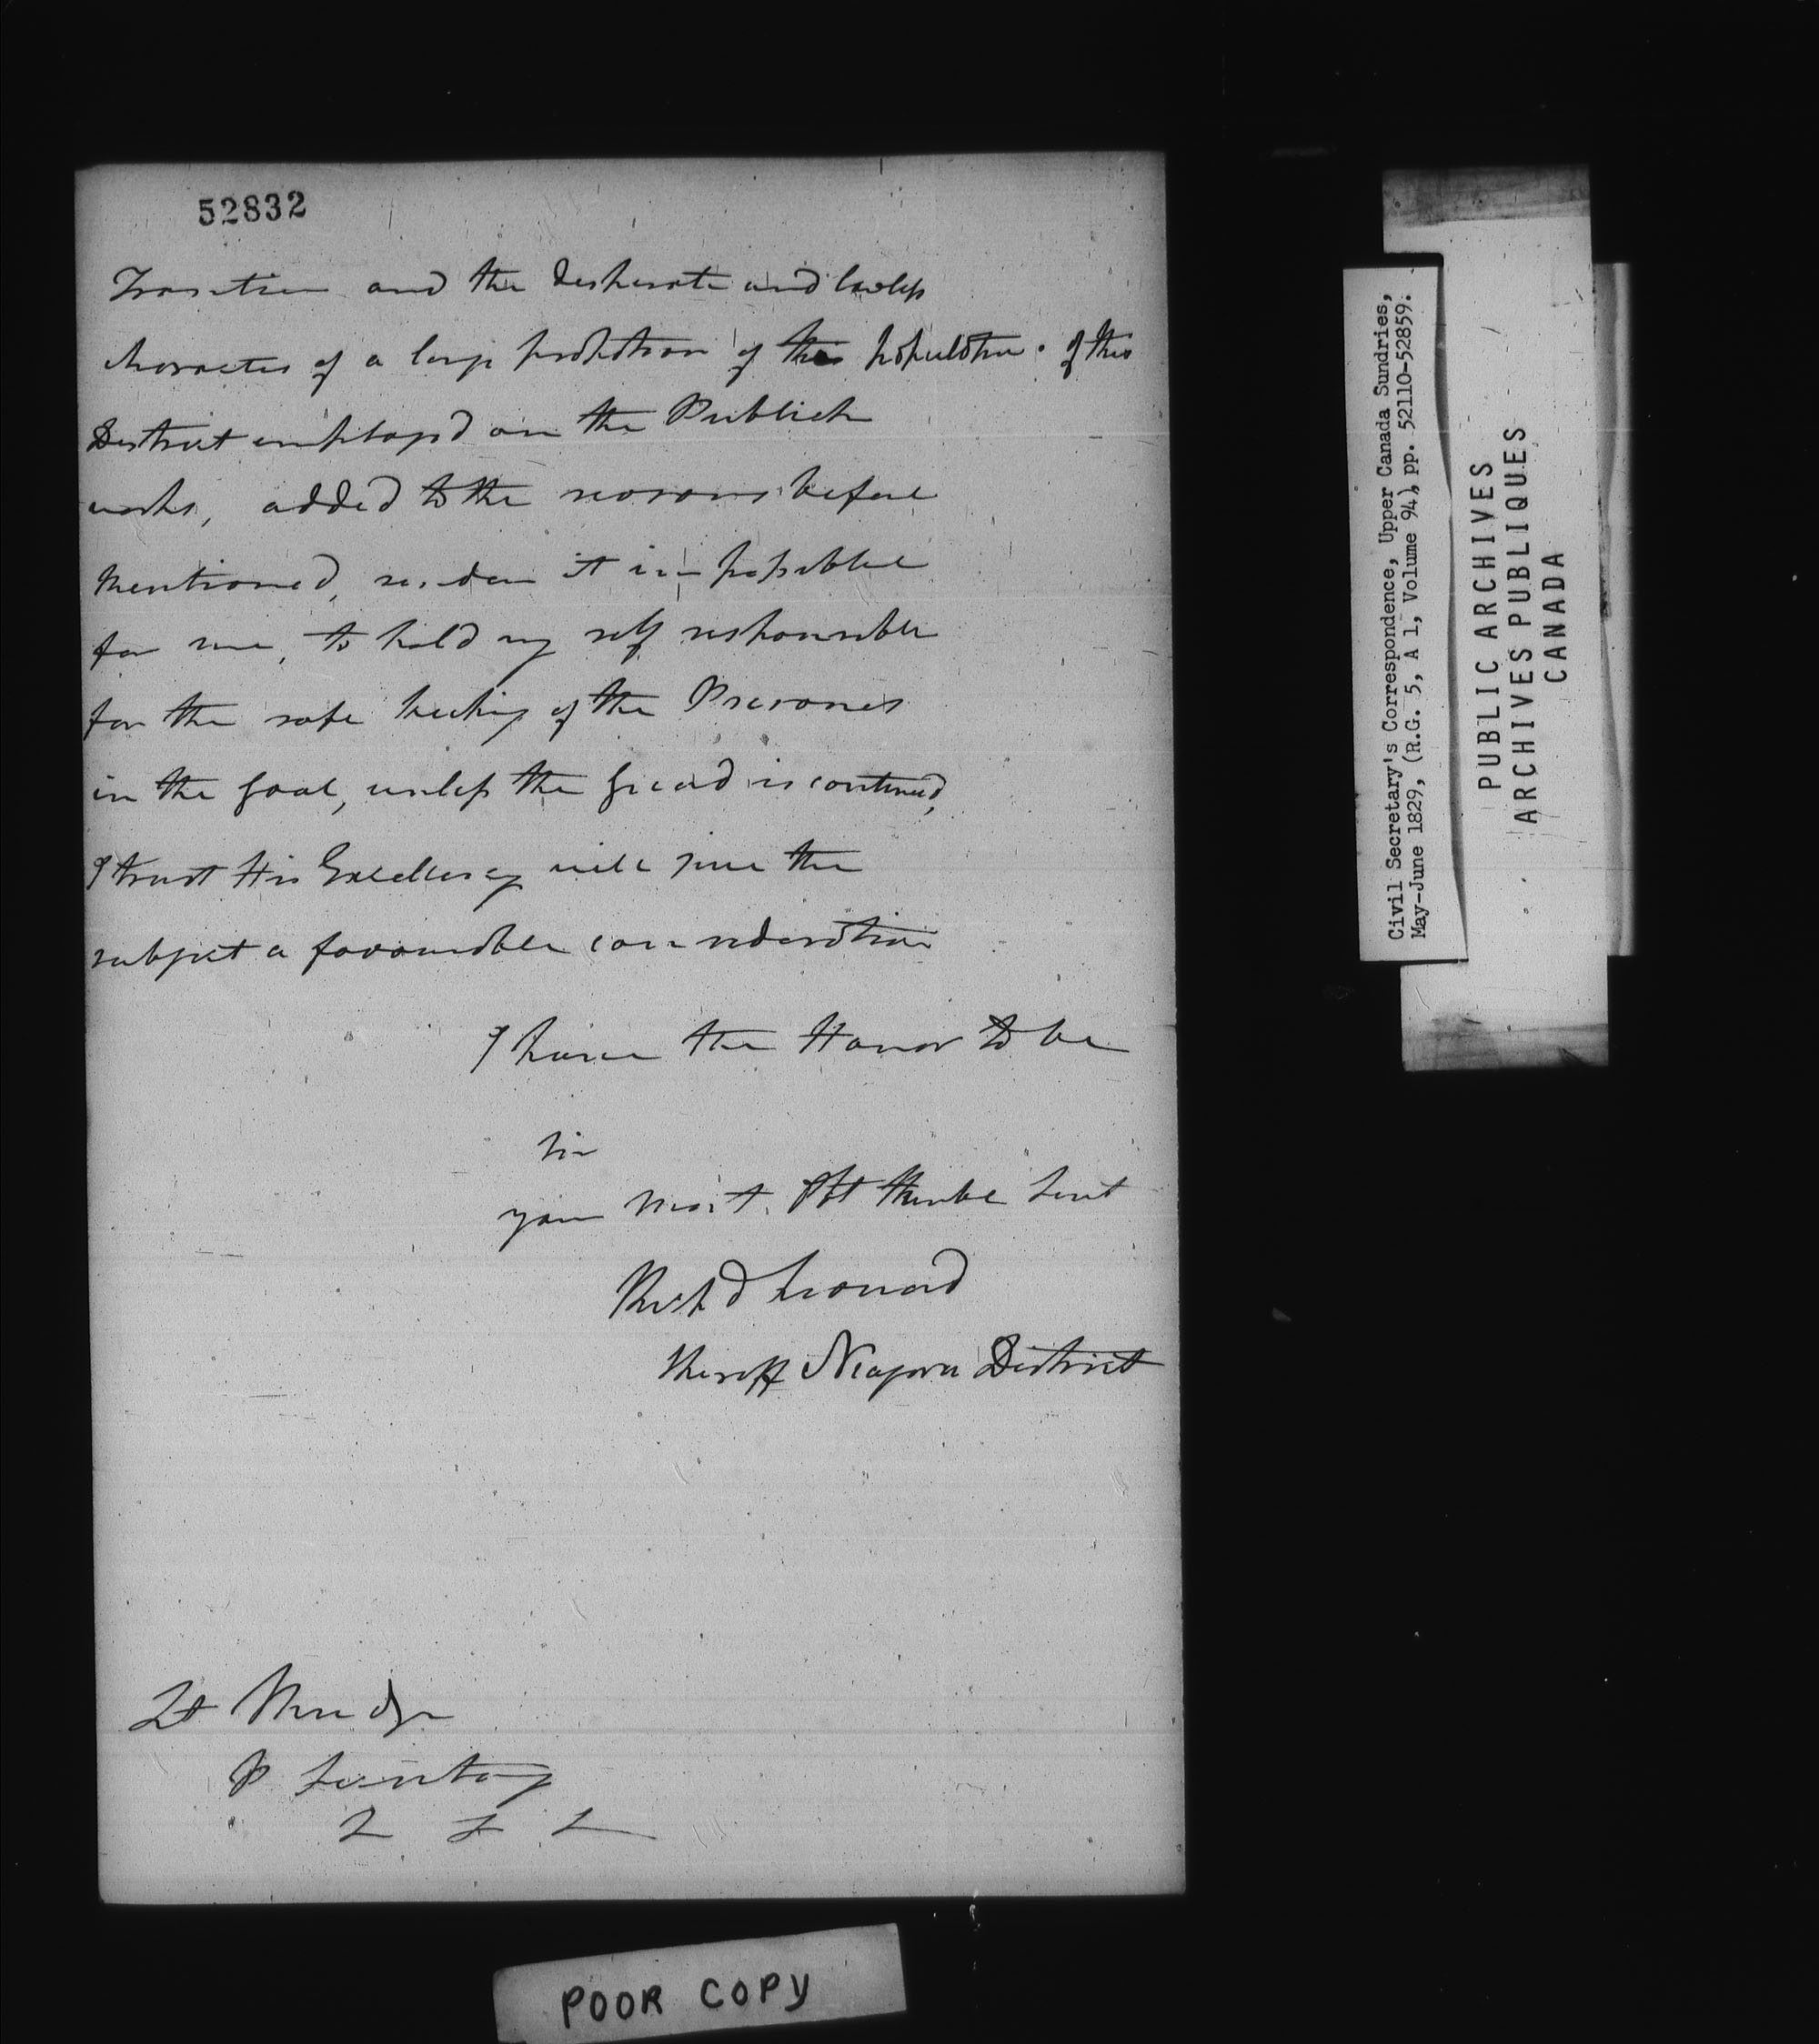 52832
Frontier and the desperate and lawless
character of a large proportion of this population of this
District employed on the Publick
works, added to the reasons before
mentioned, render it impossible
for me, to hold my self responsible
for the safe keeping of the Prisoners
in the Goal, unless the Guard is continued,
I trust His Excellency will give the
subject a favourable consideration
I have the Honor to be
Sir
your most Obt Humble Servt
Richd Leonard
Sheriff Niagara District
Lt Mudge
P Secretary
Civil Secretary's Correspondence, Upper Canada Sundries,
May-June 1829, (R.G. 5, A 1, Volume 94), pp. 52110-52859.
PUBLIC ARCHIVES
ARCHIVES PUBLIQUES
CANADA
POOR COPY